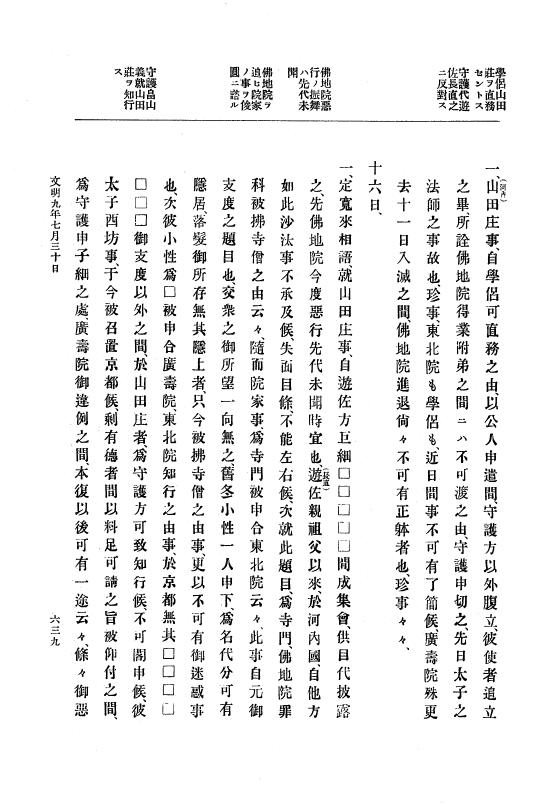 學侶山田
莊ヲ直務
セントス
守護代遊
佐長直之
ニ反對ス
佛地院惡
行ノ振舞
ハ先代未
聞
佛地院ヲ
追ヒ院家
ノ事ヲ俊
圓ニ諮ル
守護畠山
義就山田
莊ヲ知行
ス
一、山田庄事、自學侶可直務之由、以公人申遣間、守護方以外腹立、彼使者追立
(河内)
之畢、所詮佛地院得業附弟之間ニハ不可渡之由、守護申切之、先日太子之
法師之事故也、珍事、東北院も學侶も、近日間事不可有了簡候、廣壽院殊更
去十一日入滅之間、佛地院進退尙々不可有正躰者也、珍事々々、
十六日、
一、定寬來相語、就山田庄事、自遊佐方巨細□□□□□間成集會、供目代披露
之、先佛地院今度惡行先代未聞時宜也、遊佐親祖父以來、於河內國、自他方
(長直)
如此沙汰事不承及候、失面目條、不能左右候、次就此題目、爲寺門、佛地院罪
科被拂寺僧之由云々、隨而院家事、爲寺門被申合東北院云々、此事自元御
支度之題目也、交衆之御所望一向無之、舊冬小性一人申下、爲名代分可有
隱居、落髮御所存無其隱上者、只今被拂寺僧之由事、更以不可有御迷惑事
也、次彼小性爲□被申合廣壽院、東北院知行之由事、於京都無其□□□□
□□□御支度以外之間、於山田庄者、爲守護方可致知行候、不可聞申候、彼
太子西坊事、于今被召置京都候、剩有德者間、以料足可請之旨被仰付之間、
爲守護申子細之處、廣壽院御違例之間、本復以後可有一途云々、條々御惡
文明九年七月三十日
六三九